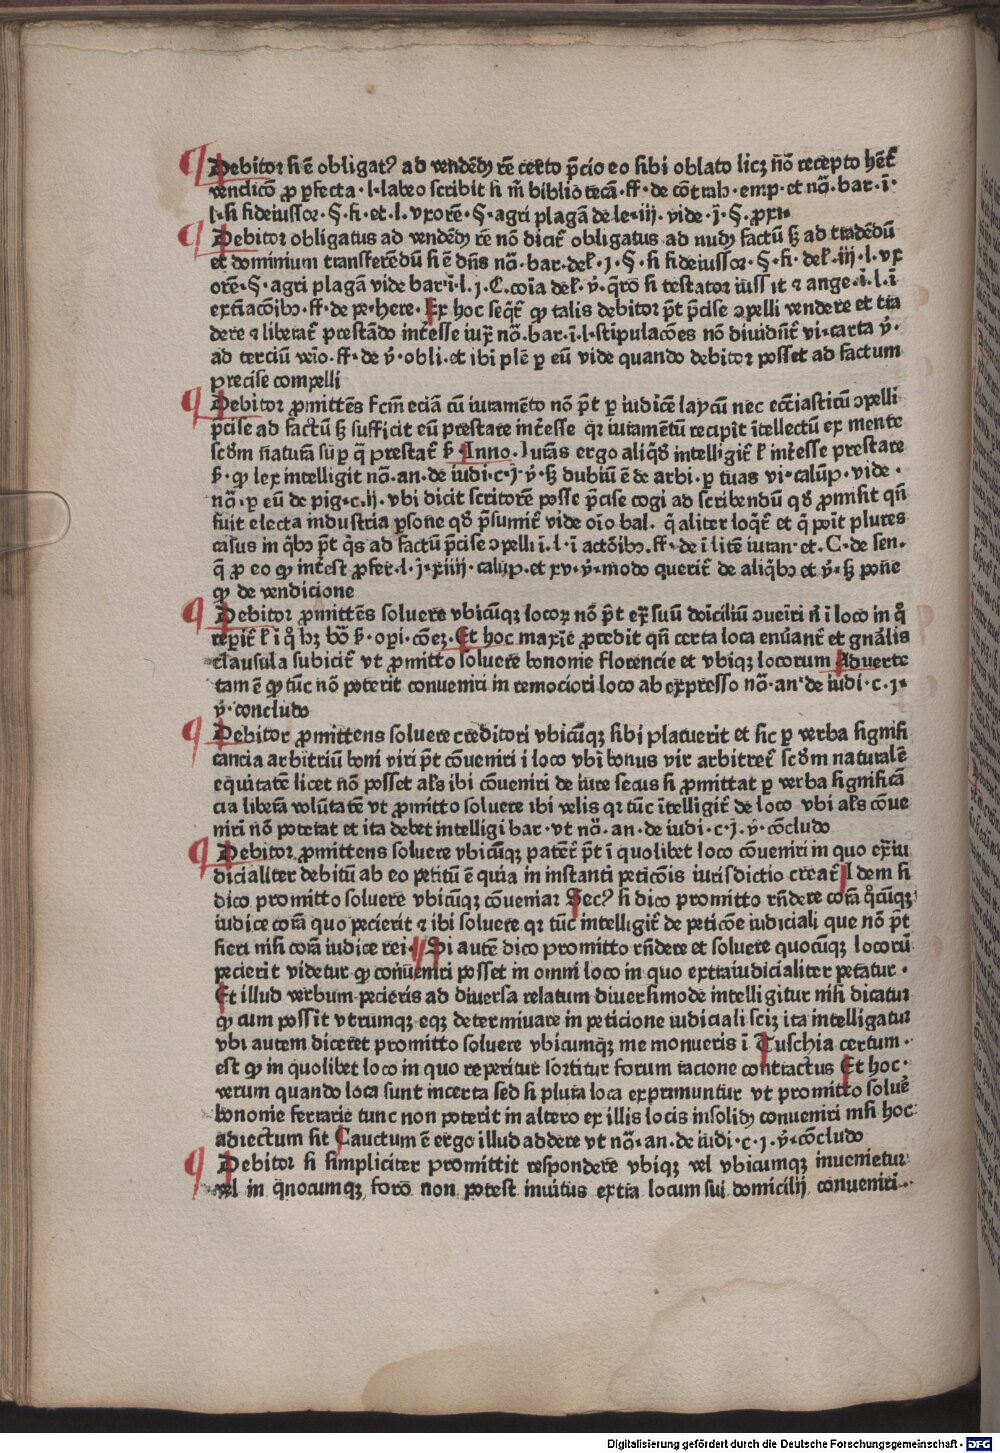 Debitor si ē obligat⁹ ad vendēdꝫ rē certo p̄cio eo sibi oblato licꝫ nō recepto hēt̄
vendicō ꝓ ꝑfecta · l · labeo scribit si m̄ bibliotecā · ff · de cōtrah · emp · et nō · bar · ī ·
l · si fideiussor · § · fi · et · l · vxorē · § · agri plagā de le · iij · vide · j · § · ꝓxi ·
Debitor obligatus ad vendēdꝫ rē nō dicit̄ obligatus ad nudꝫ factū sꝫ ad tradēdū
et dominium transferēdū si ē dn̄s nō · bar · del̄ · j · § · si fideiussor · § · fi · del̄ · iij · l · vx
orē · § · agri plagā vide bar · ī · l · j · C · cōia del̄ · ꝟ · q̄ro si testator iuss it ⁊ ange · ī · l · ī
extīacōibꝫ · ff · de pe · here · Ex hoc seq̄t̄ ꝙ talis debitor p̄t p̄cise ꝯpelli vendere et tra
dere ⁊ liberat̄ prestādo int̄esse iux̄ nō · bar · ī · l · stipulacōes nō diuidūt̄ vi · carta ꝟ ·
ad terciū vēio · ff · de ꝟ · obli · et ibi plē ꝑ eū vide quando debitor posset ad factum
precise compelli
Debitor ꝓmittēs fcm̄ eciā cū iuramēto nō p̄t ꝑ iudicē laycū nec ecc̄iasticū ꝯpelli
p̄cise ad factū sꝫ sufficit eū prestare int̄esse qꝛ iuramētū recipit ītellectū ex mente
scd̄m n̄aturā suꝑ q̄ prestat̄ ẜ Inno · Iurās ergo aliq̄d intelligit̄ ł int̄esse prestare
ẜ · ꝙ lex intelligit nō · an · de iudi · c · j · ꝟ · sꝫ dubiū ē de arbi · ꝑ tuas vi · calūp · vide ·
nō · ꝑ eū de pig · c · ij · vbi dicit scritorē posse p̄cise cogi ad scribendū qd̄ ꝓmisit qn̄
fuit electa industria ꝑsone qd̄ p̄sumit̄ vide oīo bal · q̄ aliter loq̄t̄ et q̄ poīt plures
casus in q̄bꝫ p̄t q̄s ad factū p̄cise ꝯpelli ī · l · ī actōibꝫ · ff · de ī litē iuran · et · C · de sen ·
q̄ ꝓ eo ꝙ int̄est ꝓfer · l · j · xiiij · calūp · et xv · ꝟ · modo querit̄ de aliq̄bꝫ et ꝟ · sꝫ pone
ꝙ de vendicione
Debitor ꝓmittēs soluere vbicūqꝫ locoꝝ nō p̄t ex̄ suū doīciliū ꝯueīri n̄ ī loco in q̊
reꝑit̄ ł ī q̊ hꝫ bō ẜ · oꝑi · cōeꝫ · Et hoc maxīe ꝓcedit qn̄ certa loca enūant̄ et gn̄alis
clausula subicit̄ vt ꝓmitto soluere bononie florencie et vbiqꝫ locorum Aduerte
tam ē ꝙ tūc nō poterit conueniri in remociori loco ab expresso nō · an · de iudi · c · j ·
ꝟ · concludo
Debitor ꝓmittens soluere creditori vbicūqꝫ sibi placuerit et sic ꝑ verba signifi
cancia arbitriū boni viri p̄t cōueniri ī loco vbī bonus vir arbitret̄ scd̄m naturalē
equitatē licet nō posset al̄s ibi cōueniri de iure secus si ꝓmittat ꝑ verba significā
cia liberā volūtatē vt ꝓmitto soluere ibi velis qꝛ tūc ītelligit̄ de loco vbi al̄s cōue
niri nō poterat et ita debet intelligi bar · vt nō · an · de iudi · c · j · ꝟ · cōcludo
Debitor ꝓmittens soluere vbicūqꝫ patet̄ p̄t ī quolibet loco cōueniri in quo ex̄iu
dicialiter debitū ab eo petitū ē quia in instanti peticōis iurisdictio creat̄ Idem si
dico promitto soluere vbicūqꝫ cōueniar Sec⁹ si dico promitto rn̄dere corā q̄cūqꝫ
iudice corā quo pecierit ⁊ ibi soluere qꝛ tūc intelligit̄ de peticōe iudiciali que nō p̄t
fieri nisi corā iudice rei · Si autē dico promitto rn̄dere et soluere quocūqꝫ locorū
pecierit videtur ꝙ conueniri posset in omni loco in quo extraiudicialiter petatur ·
Et illud verbum pecieris ad diuersa relatum diuersimode intelligitur nisi dicatur
ꝙ cum possit vtrumqꝫ eqꝫ determinare in peticione iudiciali sciꝫ ita intelligatur
vbi autem diceret promitto soluere vbicumqꝫ me monueris ī Tuschia certum ·
est ꝙ in quolibet loco in quo reperitur sortitur forum racione contractus Et hoc ·
verum quando loca sunt incerta sed si plura loca exprimuntur vt promitto soluē
bononie ferrarie tunc non poterit in altero ex illis locis insolidꝫ conueniri nisi hoc
adiectum sit Cauctum ē ergo illud addere vt nō · an · de iudi · c · j · ꝟ · cōcludo
Debitor si simpliciter promittit respondere vbiqꝫ vel vbicumqꝫ inuenietur
vel in q̄nocumqꝫ foro non potest inuitus extra locum sui domicilij conueniri ·
Digitalisierung gefördert durch die Deutsche Forschungsgemeinschaft - DFG